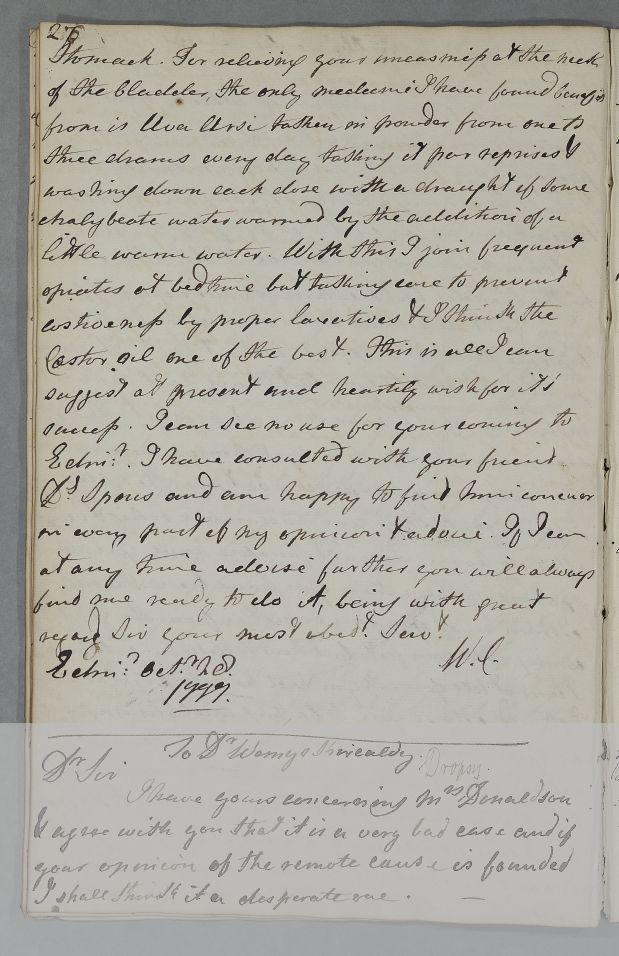 276
Stomach. For relieving your uneasiness at the neck
of the bladder, the only medecine I have found benefit
from is Uva Ursi taken in powder from one to
three drams every day taking it par reprises &
washing down each dose with a draught of some
chalybeate water warmed by the addition of a
little warm water. With this I join frequent
opiates at bedtime but taking care to prevent
costiveness by proper laxatives & I think the
Castor oil one of the best. This is all I can
suggest at present and heartily wish for it's
success. I can see no use for your coming to
Edinr. I have consulted with your friend
Dr Spens and am happy to find him concur
in every part of my opinion & advice. If I can
at any time advise further you will always
find me ready to do it, being with great
regard Sir your most obedt. Servt.
Edinr. Octr. 28.
W.C.
To Dr Wemys Kirealdy.
Dropsy.
Dr Sir
I have yours concerning Mrs Donaldson
& agree with you that it is a very bad case and if
your opinion of the remote cause is founded
I shall think it a desperate one. —